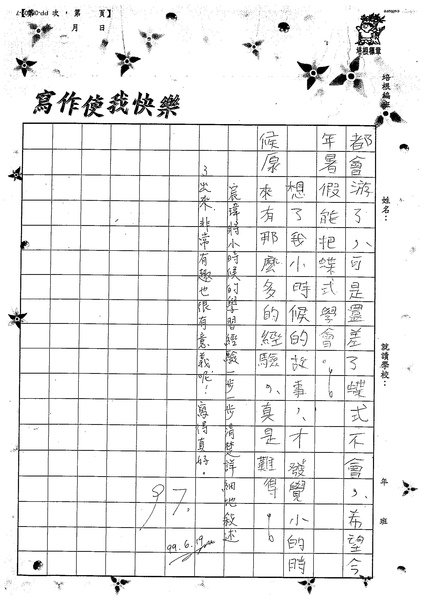 月　日
培根編班
寫作使我快樂
姓名：
就讀學校：
年　班
都會游了，可是還差了蝶式不會，希望今
年暑假能把蝶式學會。
想了我小時候的故事，才發覺小的時
候原來有那麼多的經驗，真是難得。
宸瑋將小時候的學習經驗一步一步清楚詳細地敘述
了出來，非常有趣也很有意義呢！寫得真好。
97.
99.6.19